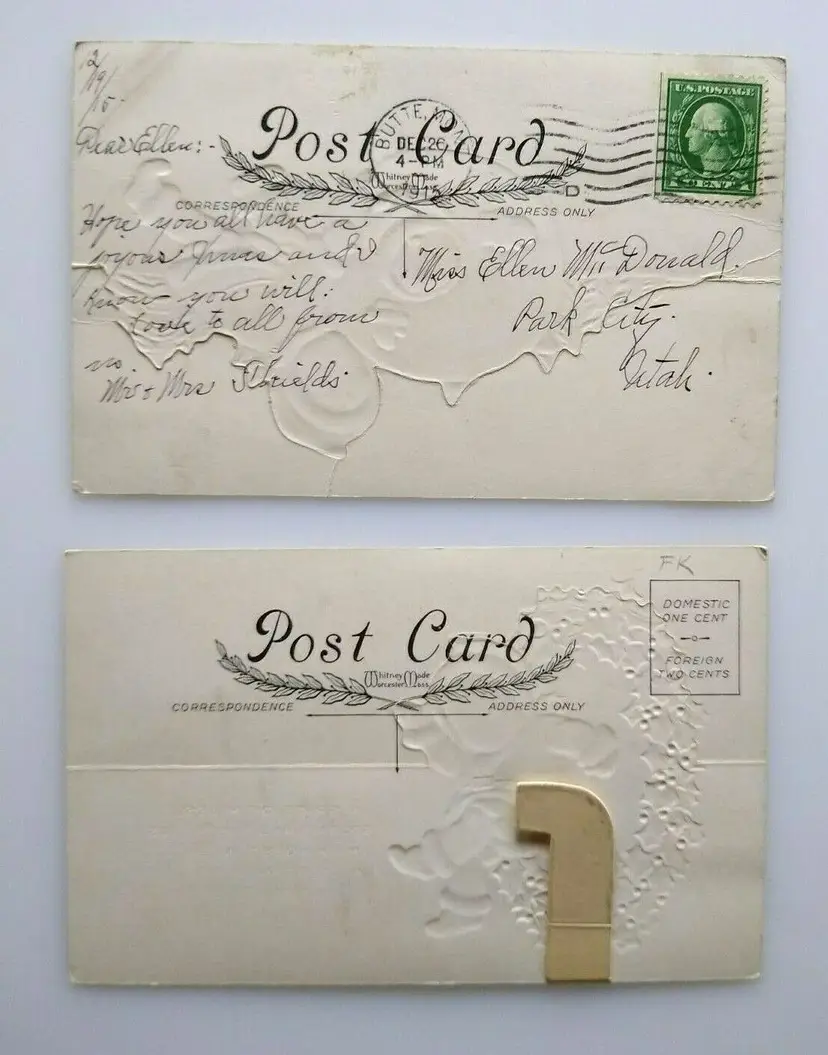 12/19/15.
Dear Ellen:-
Post Card
BUTTE, MONT.
DEC 26
4-PM
1915
D
U.S. POSTAGE
Whitney Made
Worcester, Mass.
CORRESPONDENCE
ADDRESS ONLY
Hope you all have a
joyous Xmas and I
know you will:
Love to all from
Mr & Mrs Shields.
Miss Ellen Mc Donald.
Park City.
Utah.
FK
Post Card
DOMESTIC
ONE CENT
FOREIGN
TWO CENTS
Whitney Made
Worcester, Mass.
CORRESPONDENCE
ADDRESS ONLY